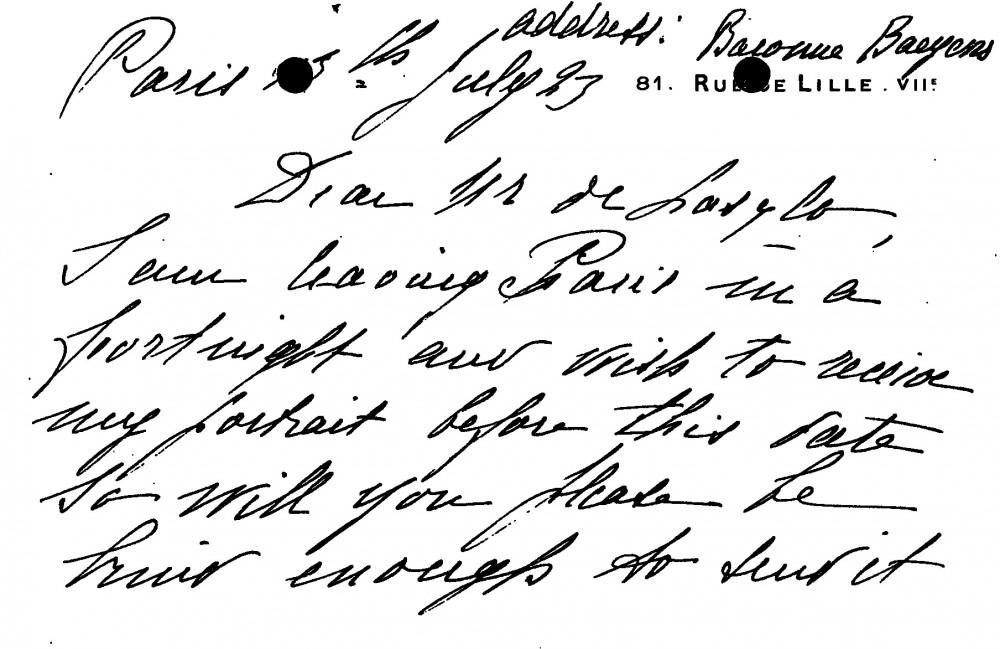 address: Baronne Baeyens
Paris 5th July 23
81. RUE DE LILLE. VIIE
Dear Mr de Laszlo,
I am leaving Paris in a
fortnight and wish to receive
my portrait before this date
so will you please be
kind enough to send it